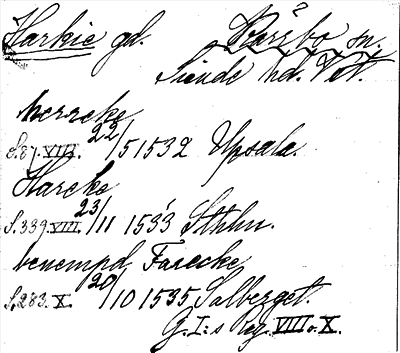 Harkie gd. Barkbo sn.
Siende hd. Vstm.
herreke
S.87.VIII. 22/5 1532 Upsala.
Harcke
S.339.VIII. 23/11 1533 Sthlm.
benempd Farecke
S.283.X. 20/10 1535 Salberget.
G.I:s Reg. VIII o. X.